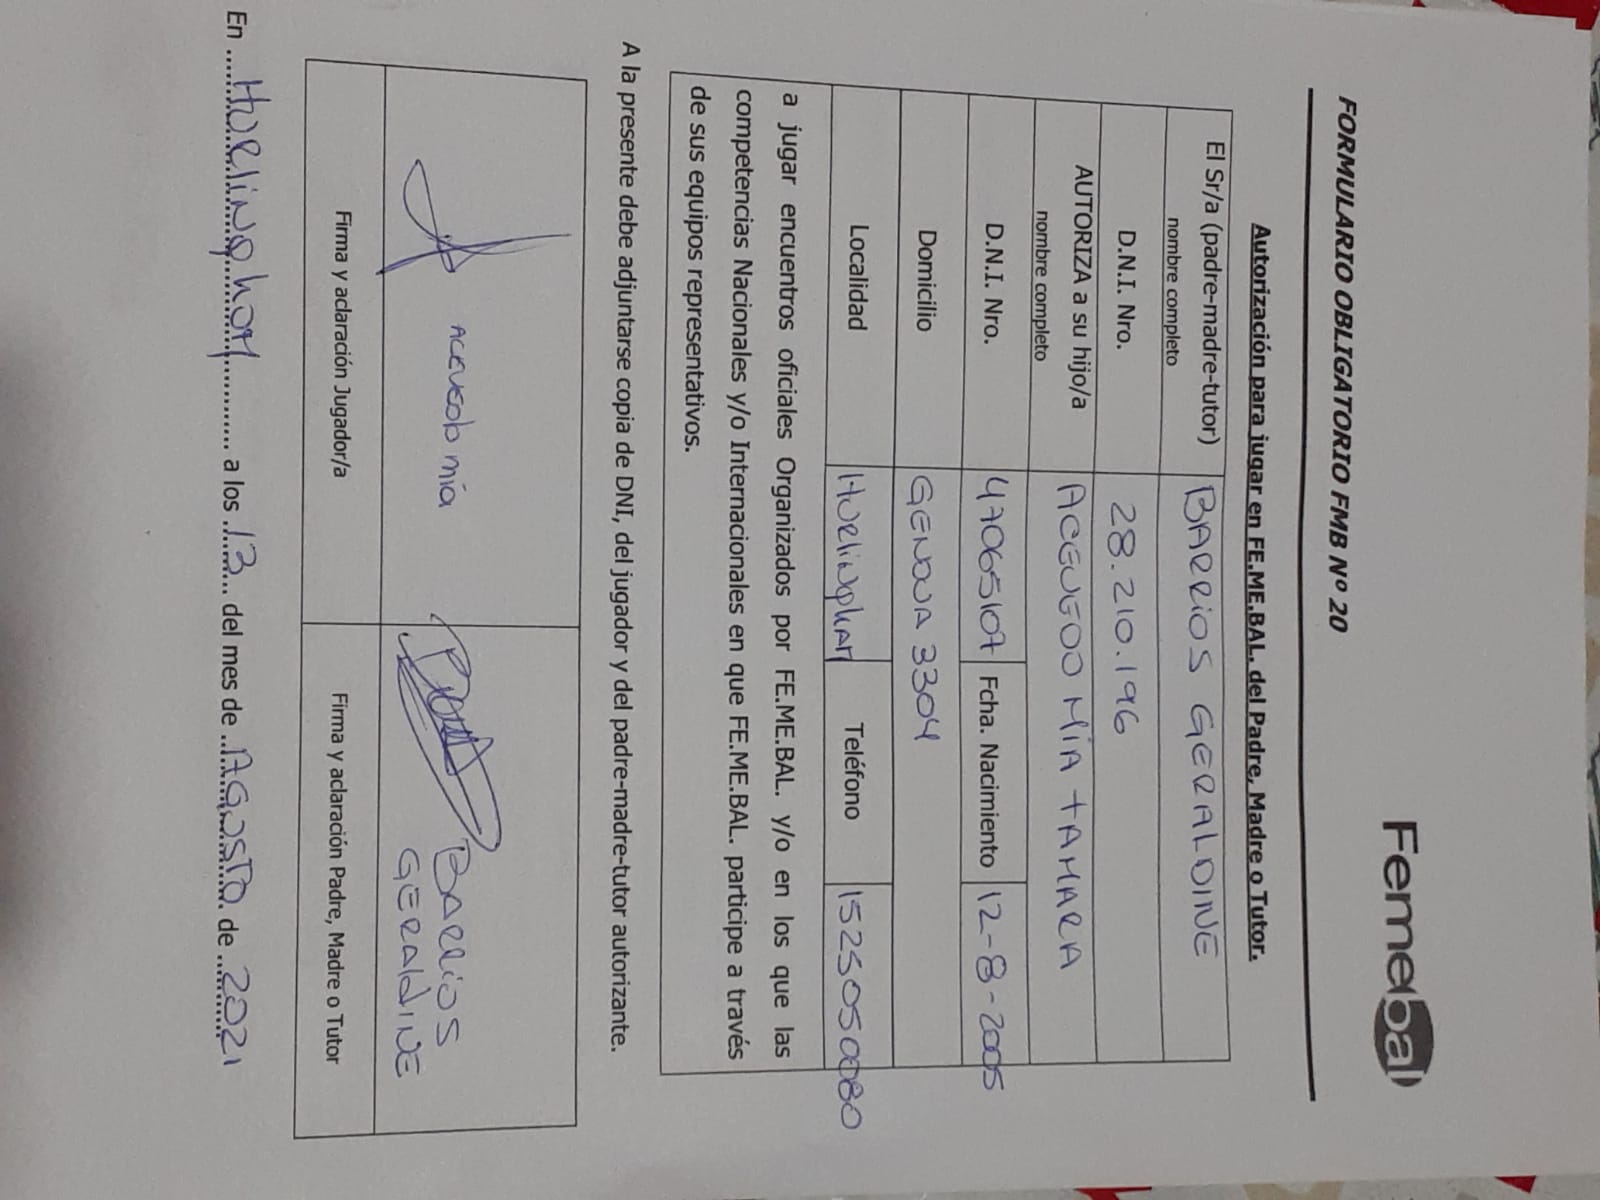 Femebal
FORMULARIO OBLIGATORIO FMB Nº 20
Autorización para jugar en FE.ME.BAL. del Padre, Madre o Tutor.
El Sr/a (padre-madre-tutor) BARRIOS GERALDINE
nombre completo
D.N.I. Nro. 28.210.196
AUTORIZA a su hijo/a ACEVEDO MÍA TAMARA
nombre completo
D.N.I. Nro. 47065107 Fcha. Nacimiento 12-8-2005
Domicilio GENOVA 3304
Localidad Hurlingham Teléfono 1523050080
a jugar encuentros oficiales Organizados por FE.ME.BAL. y/o en los que las
competencias Nacionales y/o Internacionales en que FE.ME.BAL. participe a través
de sus equipos representativos.
A la presente debe adjuntarse copia de DNI, del jugador y del padre-madre-tutor autorizante.
acevedo mía
BARRIOS
GERALDINE
Firma y aclaración Jugador/a Firma y aclaración Padre, Madre o Tutor
En Hurlingham a los 13 del mes de AGOSTO de 2021